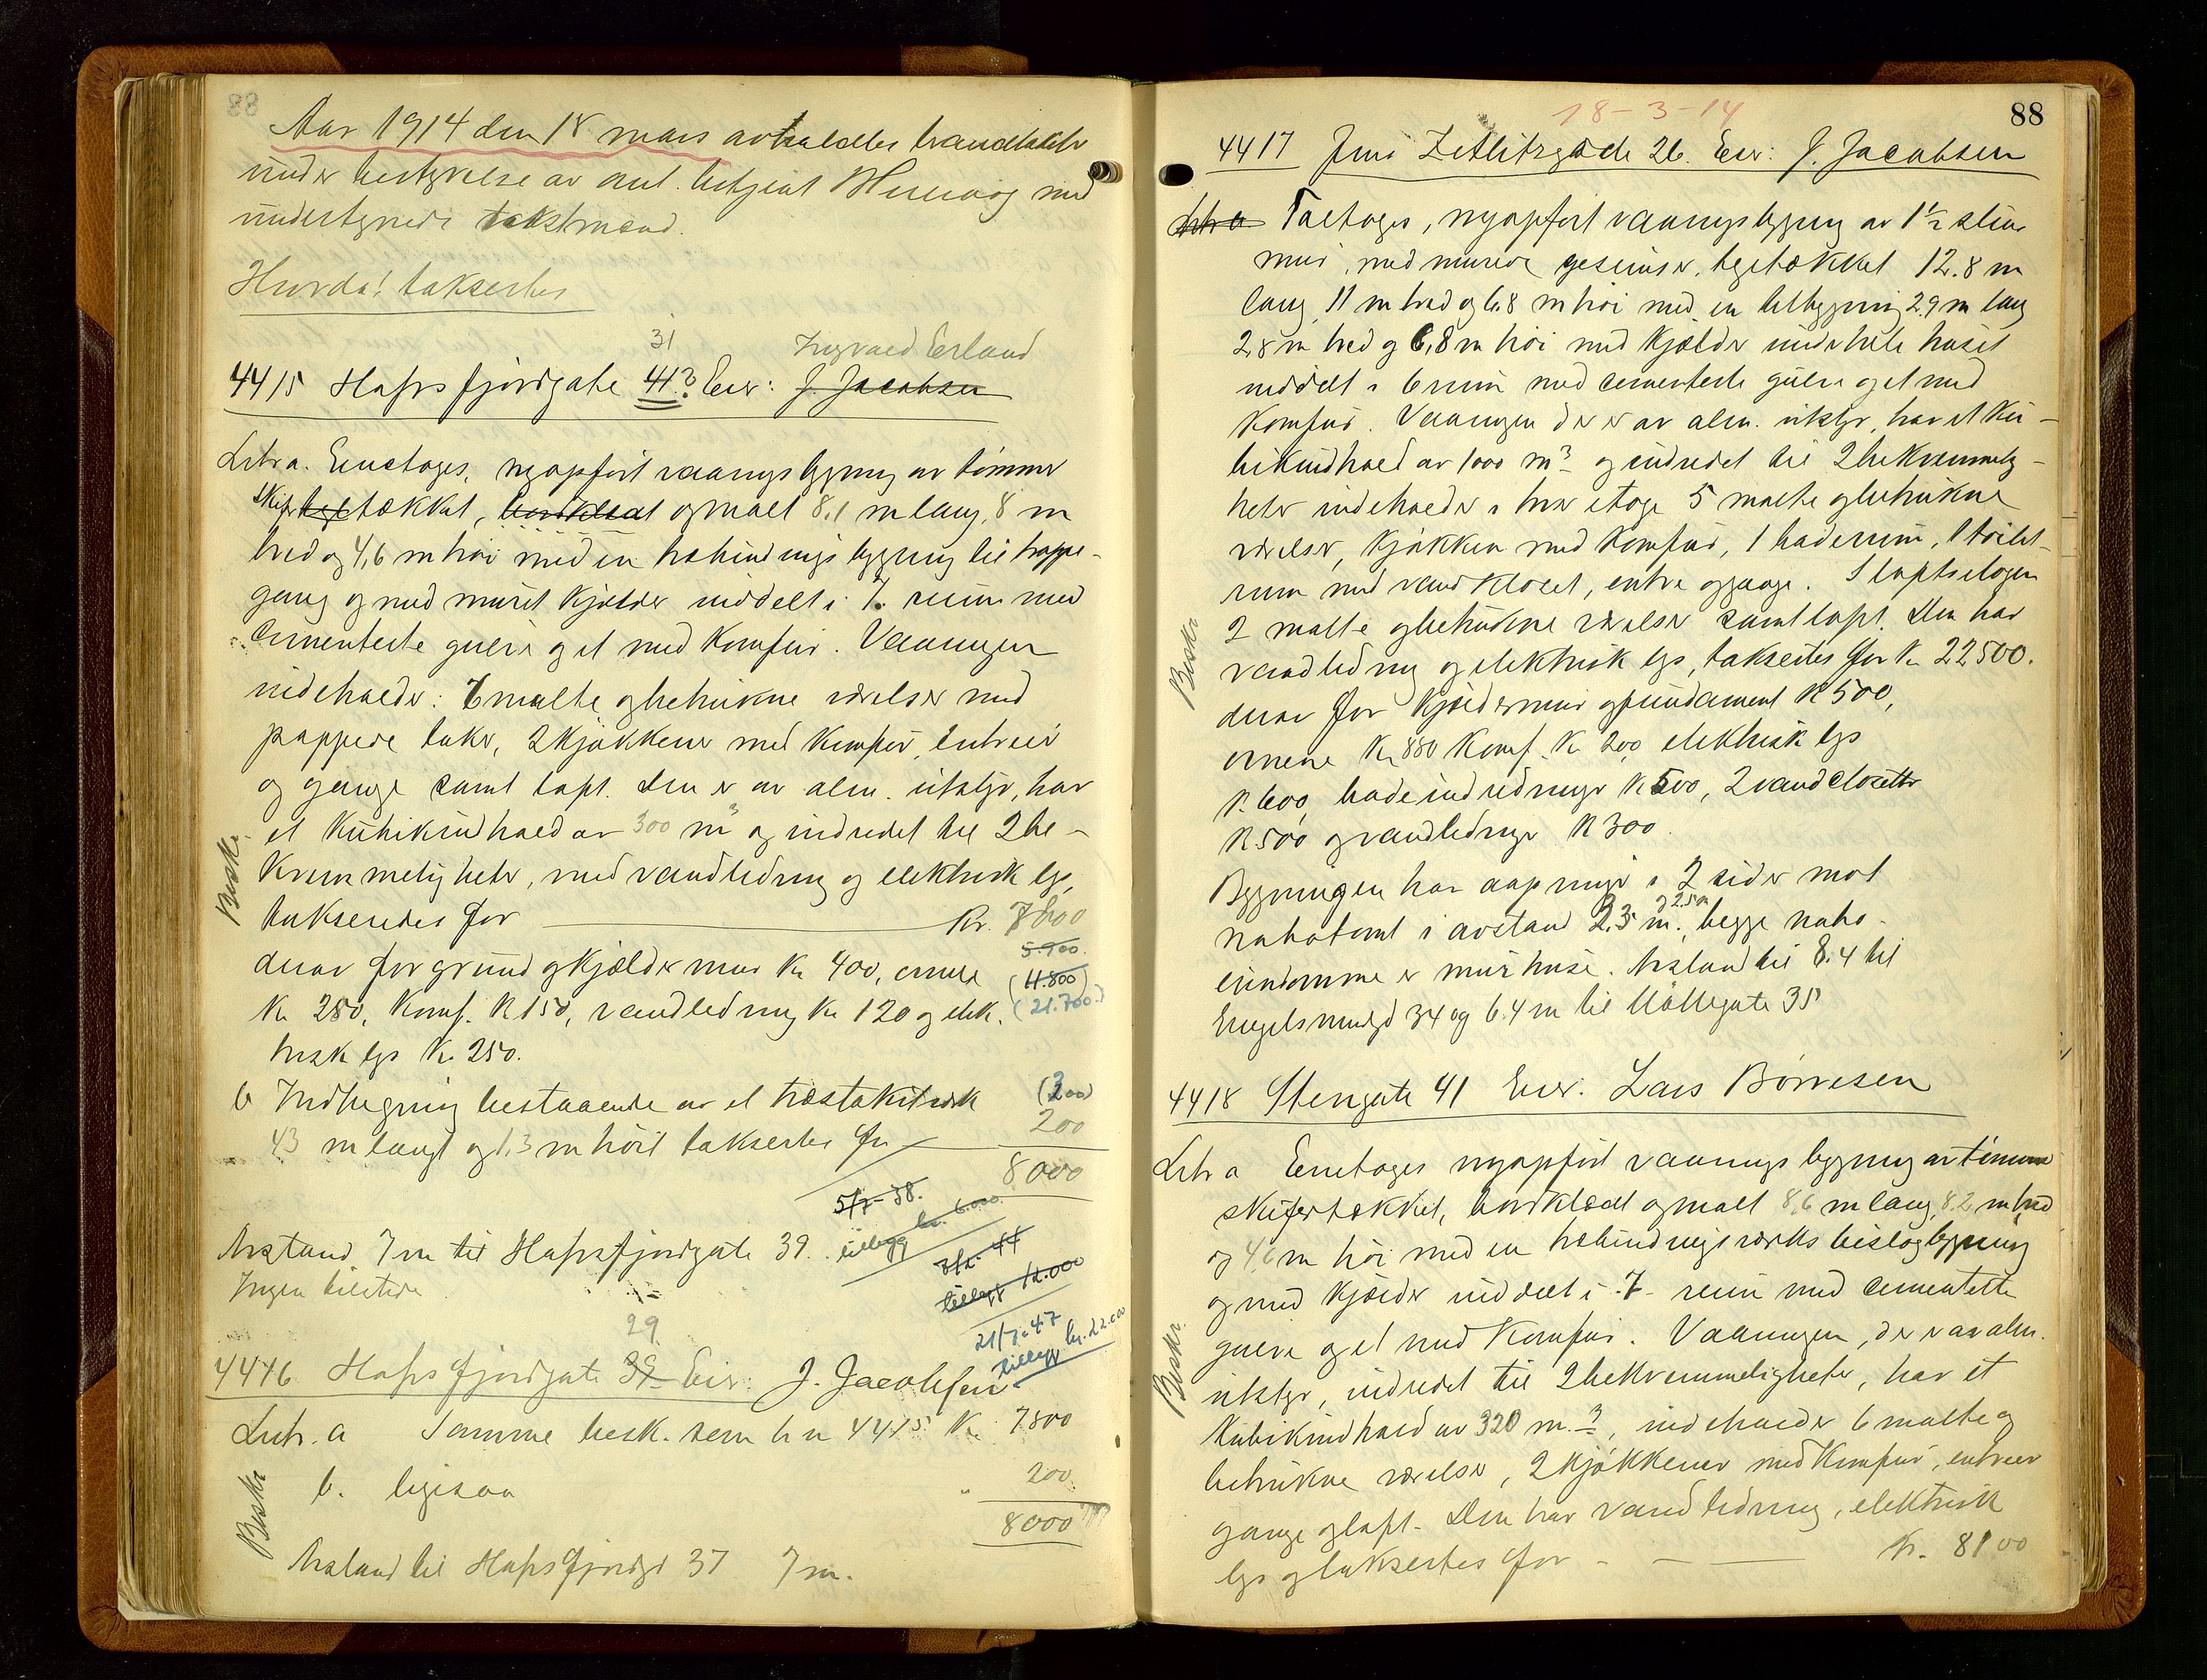 88
Aar 1914 den 18 mars avholdtes brandtakst
under bestyrelse av ant. betjent med
undertegnede takstmænd.
Hvorda! taksertes
31 Ingvald Erland
4415 Hafrsfjordgate 41? Eier: J. Jacobsen
Litr a. Enetages, nyopført vaaningsbygning av tømmer
skifer tegltækket, bordklædt og malt 8,1 m lang, 8 m
bred og 4,6 m høi med en utbindings bygning til trappe-
gang og med muret kjælder inddelt i 7 rum med
cementerte gulv og et med komfur. Vaaningen
indeholder: 6 malte og betrukne værelser med
pappede taker, 2 kjøkkener med komfur, entreer
og gange samt loft. Den er av alm. utstyr, har
et kubikindhold av 300 m³ og indredet til 2 be-
kvemmeligheter, med vandledning og elektrisk lys,
Beskr.
takseredes for Kr. 7800
5.900.
derav for grund og kjældermur Kr 400, ovnene (11.800)
Kr 280, komf. K 150, vandledning Kr 120 og elek- (21.700.)
trisk lys Kr. 250.
b Indhegning bestaaende av et træstakitværk (200)
43 m langt og 1,3 m høit taksertes for 200
8000
5/7-38.
tillegg kr. 6.000
Avstand 7 m til Hafrsfjordgate 39.
3/2-44
tillegg 12.000
Ingen ildsted
21/7-47
tillegg kr. 22.000
29
4416 Hafrsfjordgate 39 Eier: J. Jacobsen
Litr. a Samme besk. som br n 4415 Kr 7800
b. ligesaa " 200
8000
Beskr
Avstand til Hafrsfjordgt 37 7 m.
18-3-14
88
4417 Jens Zetlitzgade 26. Eier: J. Jacobsen
Litr a Toetages, nyopført vaaningsbygning av 1½ stens
mur, med murede gesimser, tegltækket 12.8 m
lang 11 m bred og 6.8 m høi med en tilbygning 2,9 m lang
2,8 m bred og 6,8 m høi med kjælder under hele huset
inddelt i 6 rum med cementerte gulve og et med
komfur. Vaaningen der er av alm. utstyr, har et ku-
bikindhold av 1000 m³ og indredet til 2 bekvemmelig-
heter indeholder i hver etage 5 malte og betrukne
værelser, kjøkken med komfur, 1 baderum, 1 toilet-
rum med vandkloset, entre og gange. I loftsetagen
2 malte og betrukne værelser samt loft. Den har
vandledning og elektrisk lys, taksertes for Kr 22500.
Beskr
derav for kjældermur og fundament K 500,
ovnene Kr 880 komf. Kr 200, elektrisk lys
K. 600, badeindredninger K 500, 2 vandclosetter
K 500 og vandledninger K 300.
Bygningen har aapninger i 2 sider mot
nabotomt i avstand 2,3 m. og 2.5 m begge nabo-
eiendomme er murhuse. Avstand til 8.4 til
Engelsmindgd 34 og 6.4 m til Møllegate 35
4418 Stengate 41 Eier: Lars Børresen
Litr a Enetages nyopført vaaningsbygning av tømmer
skifertækket, bordklædt og malt 8,6 m lang, 8,2 m bred
og 4,6 m høi med en utbindingsværks bislagbygning
og med kjælder inddelt i 7 rum med cementerte
gulve og et med komfur. Vaaningen, der er av alm.
utstyr, indredet til 2 bekvemmeligheter, har et
Beskr.
kubikindhold av 320 m.³, indeholder 6 malte og
betrukne værelser, 2 kjøkkener med komfur, entreer
gange og loft. Den har vandledning, elektrisk
lys og taksertes for Kr. 8100